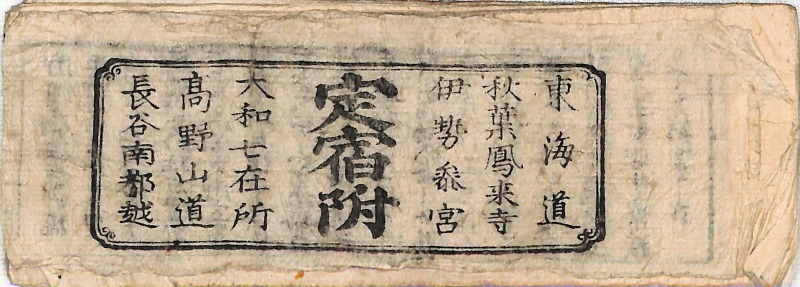 東海道
秋葉鳳来寺
伊勢参宮
定宿附
大和七在所
高野山道
長谷南都越